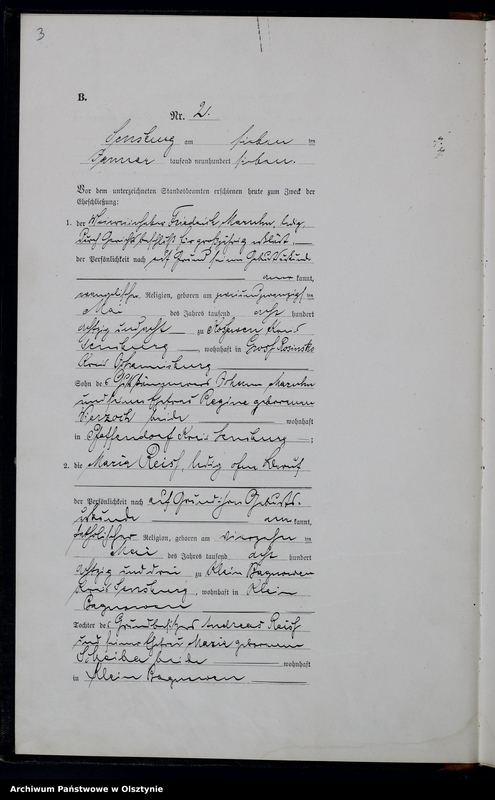 3
B.
Nr. 2.
Sensburg am sieben ten
Januar tausend neunhundert sieben.
Vor dem unterzeichneten Standesbeamten erschienen heute zum Zweck der
Eheschließung:
1. der Friedrich Maruhn, ledig,
durch Gerichtsbeschluß für großjährig erklärt,
der Persönlichkeit nach auf Grund seiner Geburtsurkunde
aner kannt,
evangelischer Religion, geboren am zweiundzwanzigsten
Mai des Jahres tausend acht hundert
achtzig und acht zu Kreis
Sensburg, wohnhaft in Groß Rosinsko
Kreis Johannisburg
Sohn des Johann Maruhn
und seiner Ehefrau Regine geborenen
beide wohnhaft
in Pfaffendorf Kreis Sensburg;
2. die Maria Reisch, ledig ohne Beruf
der Persönlichkeit nach auf Grund ihrer Geburts-
urkunde aner kannt,
katholischer Religion, geboren am vierzehn ten
Mai des Jahres tausend acht hundert
achtzig und drei zu Klein Bagnowen
Kreis Sensburg, wohnhaft in Klein
Bagnowen
Tochter des Grundbesitzers Andreas Reisch
und seiner Ehefrau Maria geborenen
beide wohnhaft
in Klein Bagnowen
Archiwum Państwowe w Olsztynie